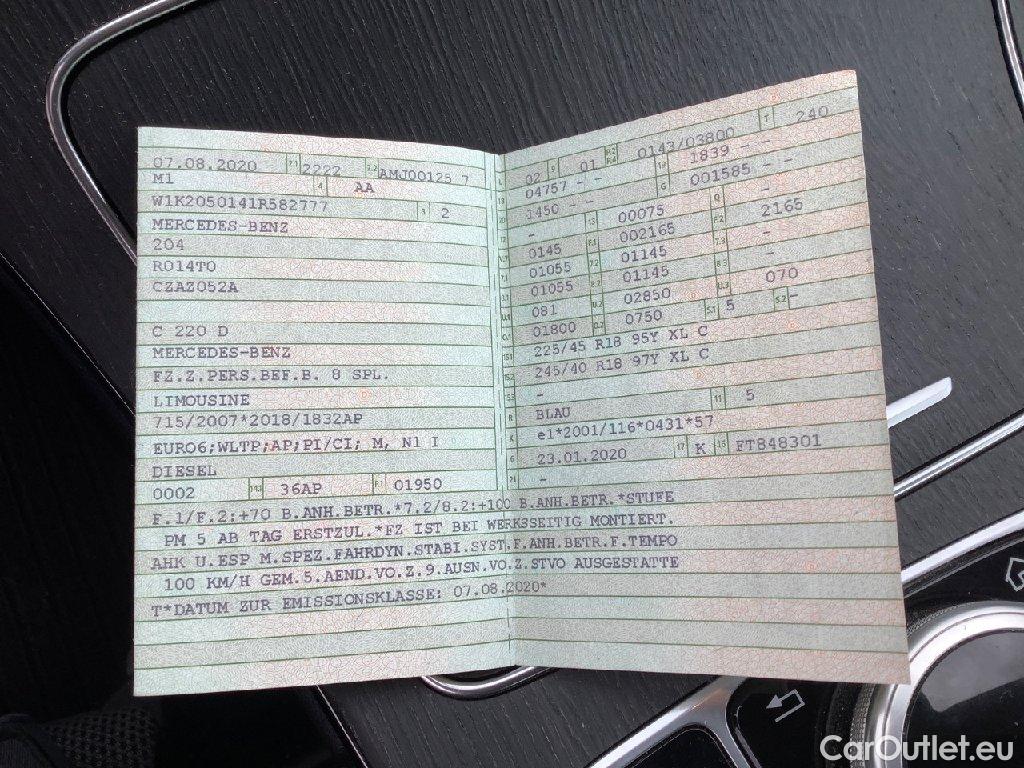 07.08.2020 2.1 2222 2.2 AMJ00125 7
M1 4 AA
W1K2050141R582777 3 2
MERCEDES-BENZ
204
R014T0
CZAZ052A
C 220 D
MERCEDES-BENZ
FZ.Z.PERS.BEF.B. 8 SPL.
LIMOUSINE
715/2007*2018/1832AP
EURO6;WLTP;AP;PI/CI; M, N1 I
DIESEL
0002 14.1 36AP P.1 01950
L 02 9 01 P.2 P.4 0143/03800 T 240
18 04757 - - 19 1839 - -
20 1450 - - G 001585 - -
12 - 13 00075 Q -
V.7 0145 F.1 002165 F.2 2165
7.1 01055 7.2 01145 7.3 -
8.1 01055 8.2 01145 8.3 -
U.1 081 U.2 02850 U.3 070
O.1 01800 O.2 0750 S.1 5 S.2 -
15.1 225/45 R18 95Y XL C
15.2 245/40 R18 97Y XL C
15.3 -
R BLAU 11 5
K e1*2001/116*0431*57
6 23.01.2020 17 K 16 FT848301
21 -
F.1/F.2:+70 B.ANH.BETR.*7.2/8.2:+100 B.ANH.BETR.*STUFE
PM 5 AB TAG ERSTZUL.*FZ IST BEI WERKSSEITIG MONTIERT.
AHK U.ESP M.SPEZ.FAHRDYN.STABI.SYST.F.ANH.BETR.F.TEMPO
100 KM/H GEM.5.AEND.VO.Z.9.AUSN.VO.Z.STVO AUSGESTATTE
T*DATUM ZUR EMISSIONSKLASSE: 07.08.2020*
CarOutlet.eu